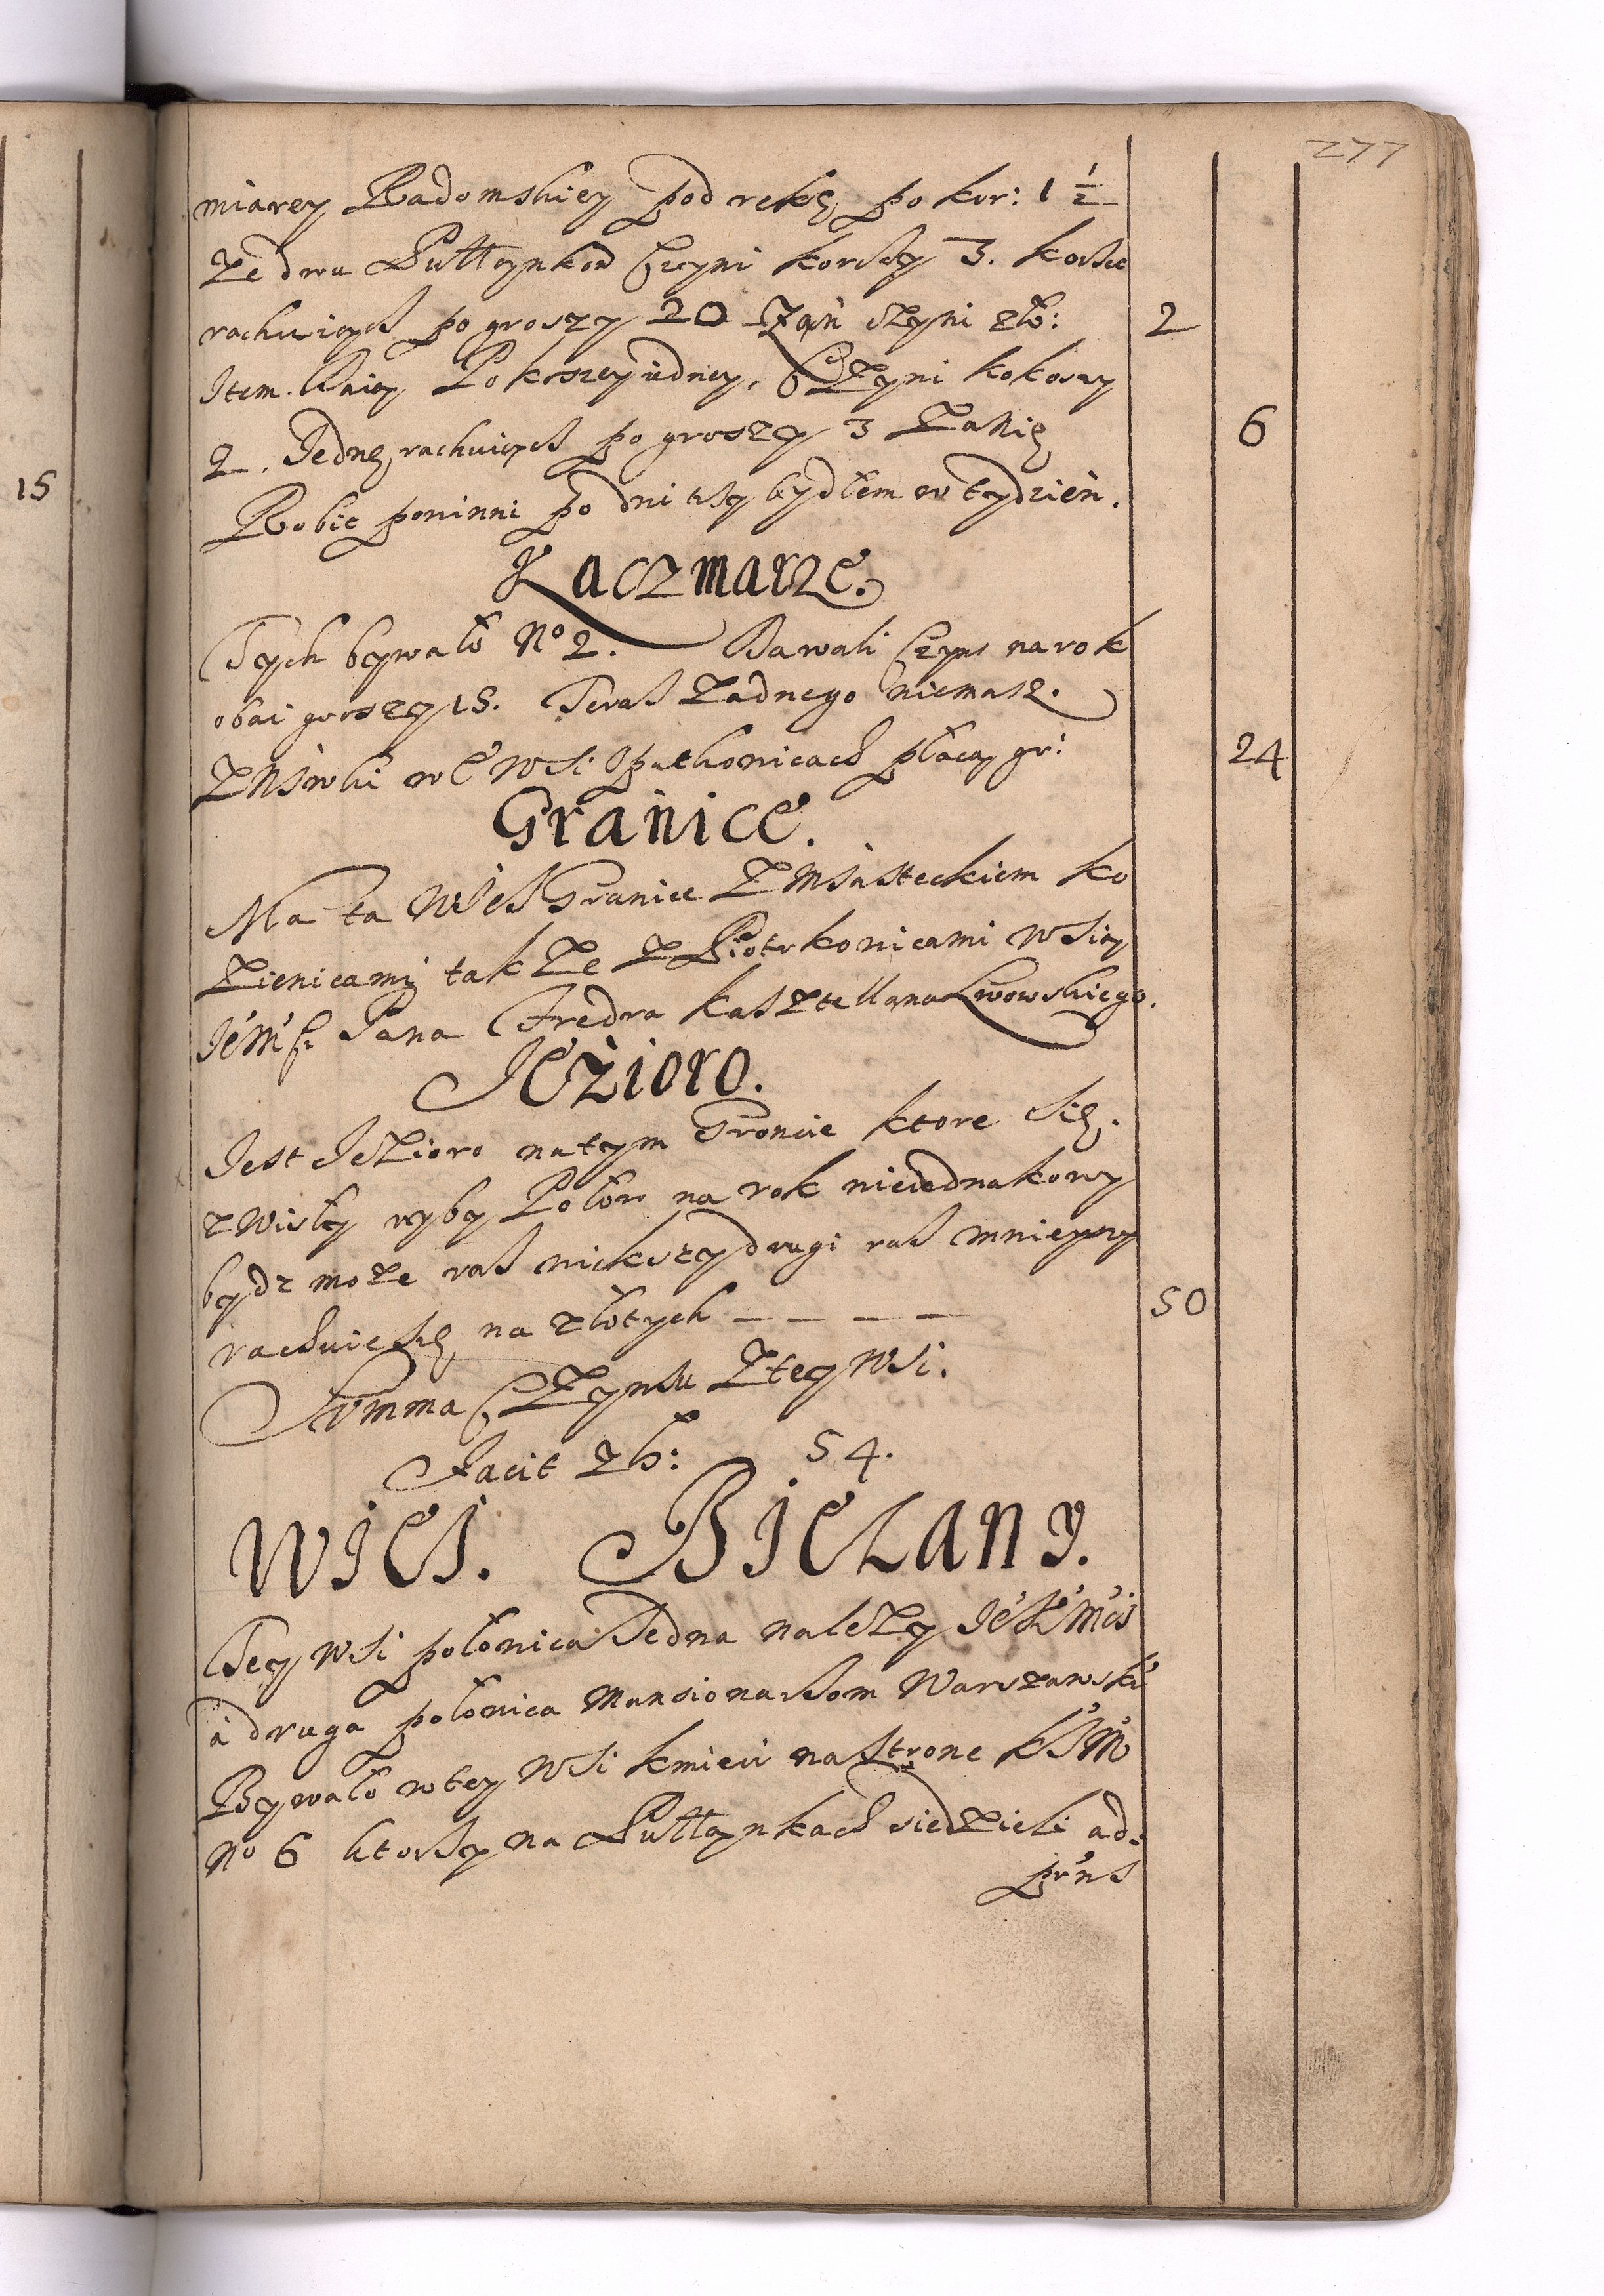 277
miarey Radomskiey pod rekę po kor: 1 ½
Ze dwu Pułłaynkow Czyni korcy 3. korsec
rachuiąc po groszy 20 Zań czyni zło: 2
Item. Po kroszey iedney, CZyni kokoszy
2. Jednę rachuiąc po groszy 3 Za Nię 6
Robic powinni po dni bydłem w tydzień.
Kaczmarze.
Tych bywało No 2. Dawali Czyns na rok
obai groszy 15. Teras Zadnego niemasz.
w WSi płacą gr: 24
Granice.
Ma ta WieS Granice Z Miasteckiem Ko
Zienicami takZe Z Piotrkowicami WSią
JéM Pana Fredra kaSZtellana Lwowskiego.
JeZioro.
Jest JeZioro natym Groncie ktore Się
z Wisły ryby Połow na rok nieiednakowy
bydz moZe raS wiekszy drugi raS mnieyszy
rachuie Się na złotych – – – – 50
Summa CZynsu Z tey WSi.
Facit Zł: 54.
WieS. BieLany.
Tey WSi połowica Jedna naleZy JéKMci
a druga połowica MansionaRom Warszawski
Bywało w tey WSi kmieci na Strone KJM
No 6 ktorzy na Pułłaynkach siedZieli ad:
prńs
15